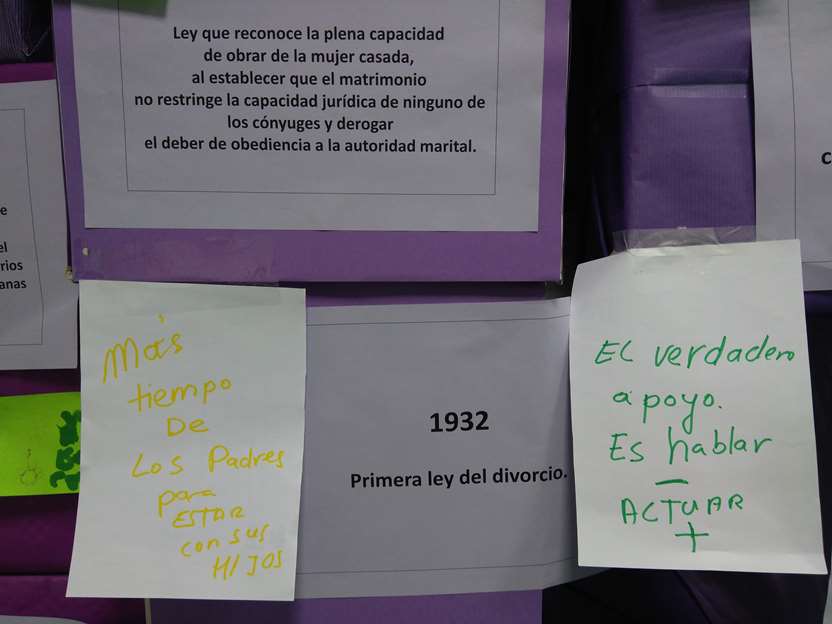 Ley que reconoce la plena capacidad
de obrar de la mujer casada,
al establecer que el matrimonio
no restringe la capacidad jurídica de ninguno de
los cónyuges y derogar
el deber de obediencia a la autoridad marital.
e
el
rios
anas
c
Más
tiempo
De
Los Padres
para
ESTAR
con sus
HIJOS
1932
Primera ley del divorcio.
EL verdadero
apoyo.
Es hablar
-
ACTUAR
+